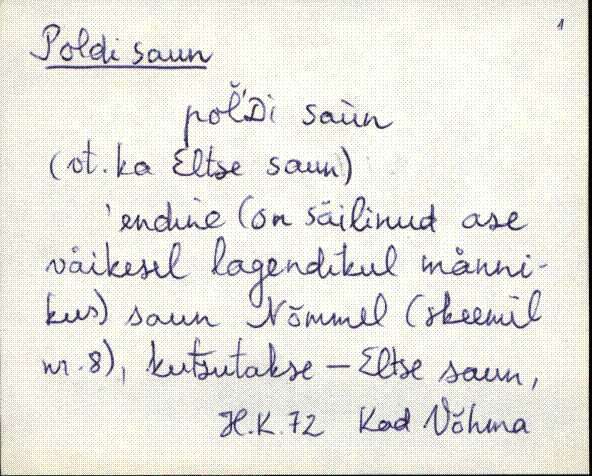 1
Poldi saun
pol̆'Di saùn
(vt. ka Eltse saun)
'endine (on säilinud ase
väikesel lagendikul männi-
kus) saun Nõmmel (skeemil
nr. 8), kutsutakse – Eltse saun,
H.K. 72 Kad Võhma